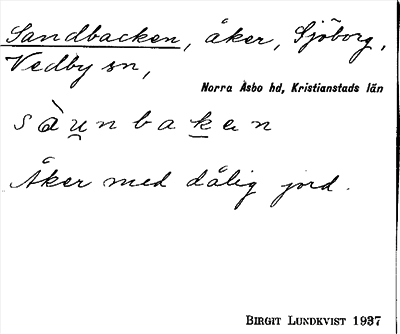 Sandbacken, åker, Sjöborg,
Vedby sn,
Norra Åsbo hd, Kristianstads län
sàu̯nbaken
Åker med dålig jord.
BIRGIT LUNDKVIST 1937